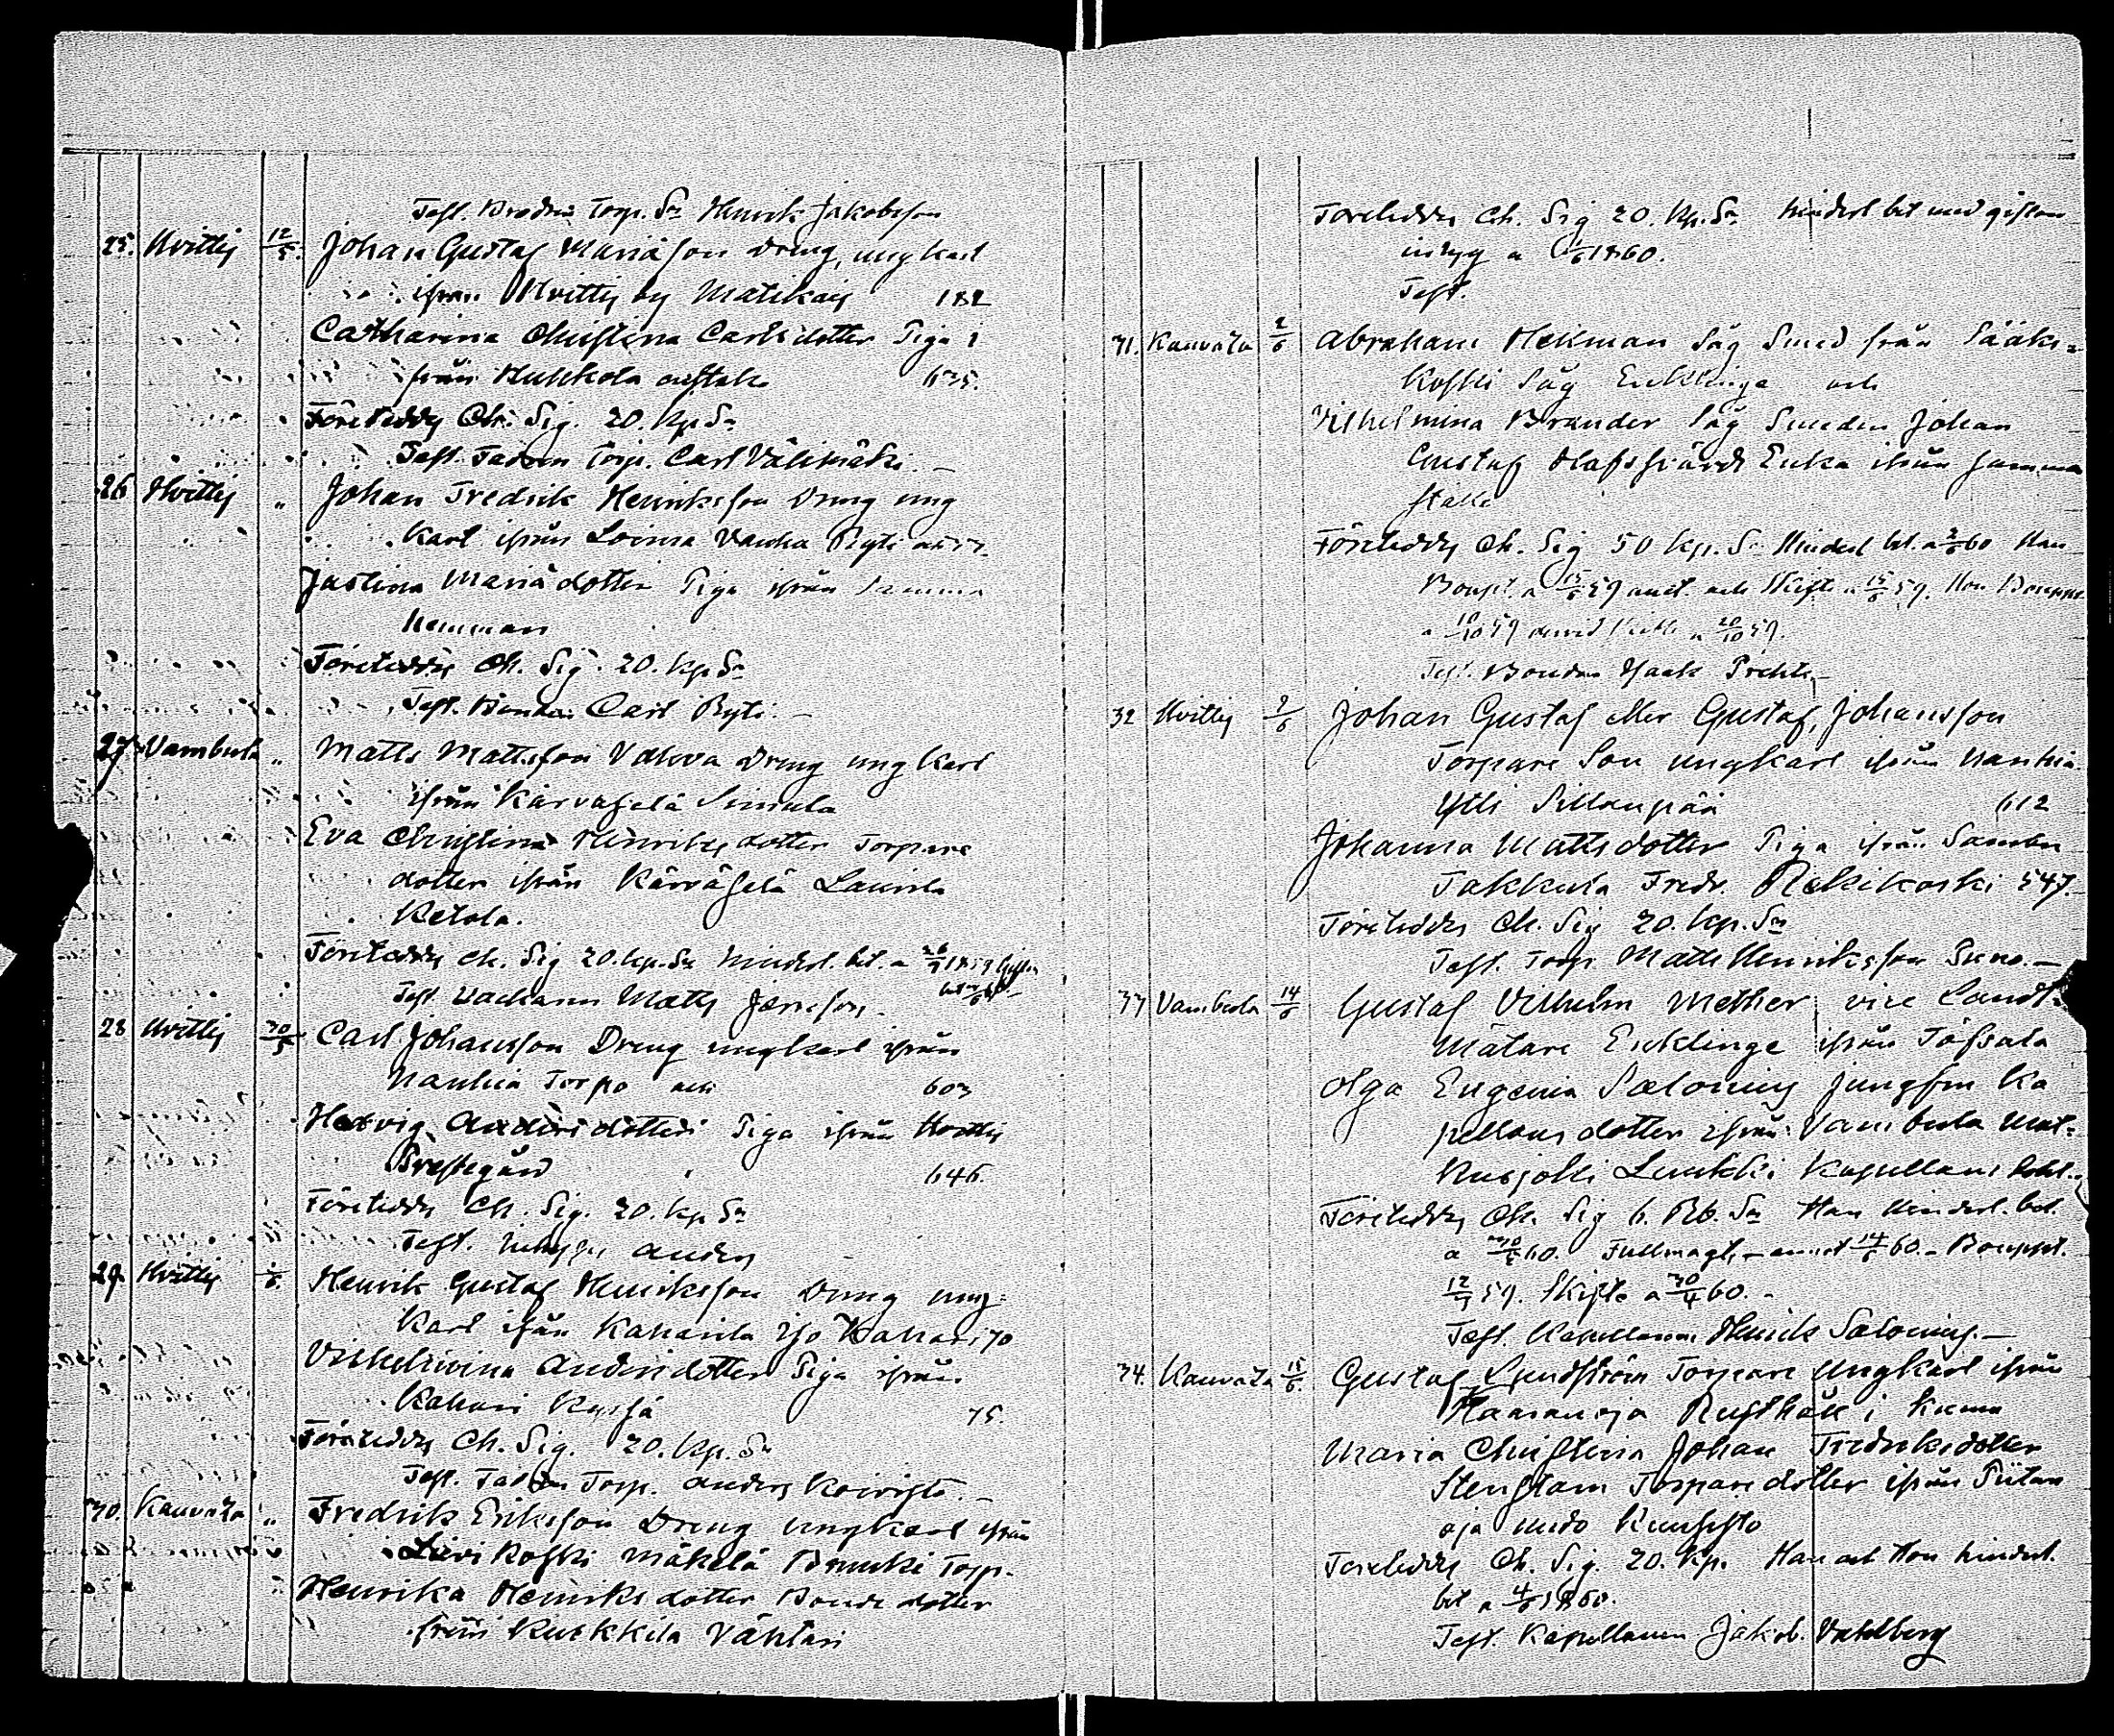 Test. Brodren Torp. Sn Henrik Jakobsson
25. Hvittis 12/5. Johan Gustaf Mariasson Dreng, ungkarl
ifrån Hvittis by Matikais 182
Catharina Christina Carlsdotter Piga i
från Hukkola 635.
Företeddes Ch. Sig. 20. kp. Sr
Test. Fadren Torp. Carl Välimäki. —
26 Hvittis " Johan Fredrik Henriksson Dreng ung
karl ifrån Loima Vanha Ryti
Justina Mariadotter Piga ifrån samma
hemman
Företeddes Ch. Sig. 20. kp. Sr
Test. Bonden Carl Ryti. —
27. Vambula " Matts Mattsson Vahva Dreng ungkarl
ifrån Kärväselä Simula
Eva Christina Henriksdotter Torpare
dotter ifrån Kärväselä Laurila
Ketola.
Företeddes Ch. Sig 20. kp. Sr hinderl. bet. a 26/9 1859
Test. Matts
28 Hvittis 30/5 Carl Johansson Dreng ungkarl ifrån
Nanhia Torpa och 603
Hedvig Andersdotter Piga ifrån Hvittis
Prestegård 646.
Företeddes Ch. Sig. 20. kp. Sr
Test. Anders
29. Hvittis Henrik Gustaf Henriksson Dreng ung=
karl ifrån Kaharila Yso Kahari 70
Vilhelmina Andersdotter Piga ifrån
Kahari 75.
Företeddes Ch. Sig. 20. kp. Sr
Test. Fadren Torp. Anders Koivisto. —
30. Kauvatsa " Fredrik Eriksson Dreng ungkarl ifrån
Lievikoski Mäkelä Torp.
Henrika Henriksdotter Bonde dotter
från Kurkkila Vähtari
Företeddes Ch. Sig 20. kp. Sr hinderl bet med gifton
1860.
Test.
31. Kauvatsa 2/6 Abraham Hekman Såg Smed från Sääks=
koski Såg Enkling och
Vilhelmina Brander Såg Smeden Johan
Gustaf Olafsvärds Enka ifrån samma
ställe
Företeddes Ch. Sig 50 kp. Sr Hinderl bet. a 2/6 60 Han
Boupt. a 15/6 59 och Skifte a 15/6 59. Hon Bouppt.
a 10/10 59 a 20/10 59.
Test. Bonden Isaak
32 Hvittis 2/6 Johan Gustaf eller Gustaf, Johansson
Torpare Son ungkarl ifrån Nanhia
Ylli Sillanpää 612
Johanna Mattsdotter Piga ifrån Sambu
Takkula Fredr. Rekikoski 547.
Företeddes Ch. Sig 20. kp. Sr
Test. Torp Matts Henriksson —
33 Vambula 14/6 Gustaf Vilhelm Mether vice Landt=
mätare Enklinge ifrån Töfsala
Olga Eugenia Salonius Jungfru Ka
pellans dotter ifrån Vambula Mut=
kusjoki Luukki Kapellans bohl.
Företeddes Ch. Sig 6. Rb. Sr Han hinderl. bet.
a 60. Fullmagt, — 14/6 60. — Bouppt.
59. Skifte a 30/4 60. —
Test. Kapellanen Henrik Salonius. —
34. Kauvatsa 15/6. Gustaf Lundström Torpare Ungkarl ifrån
Haaranoja Rusthåll i Kumo
Maria Christina Johan Fredriksdotter
Stenstam Torpare dotter ifrån Piitan
oja Uudo Kuusisto
Företeddes Ch. Sig. 20. kp. Han och Hon hinderl.
bet a 4/6 1860.
Test. Kapellanen Jakob. Vahlberg